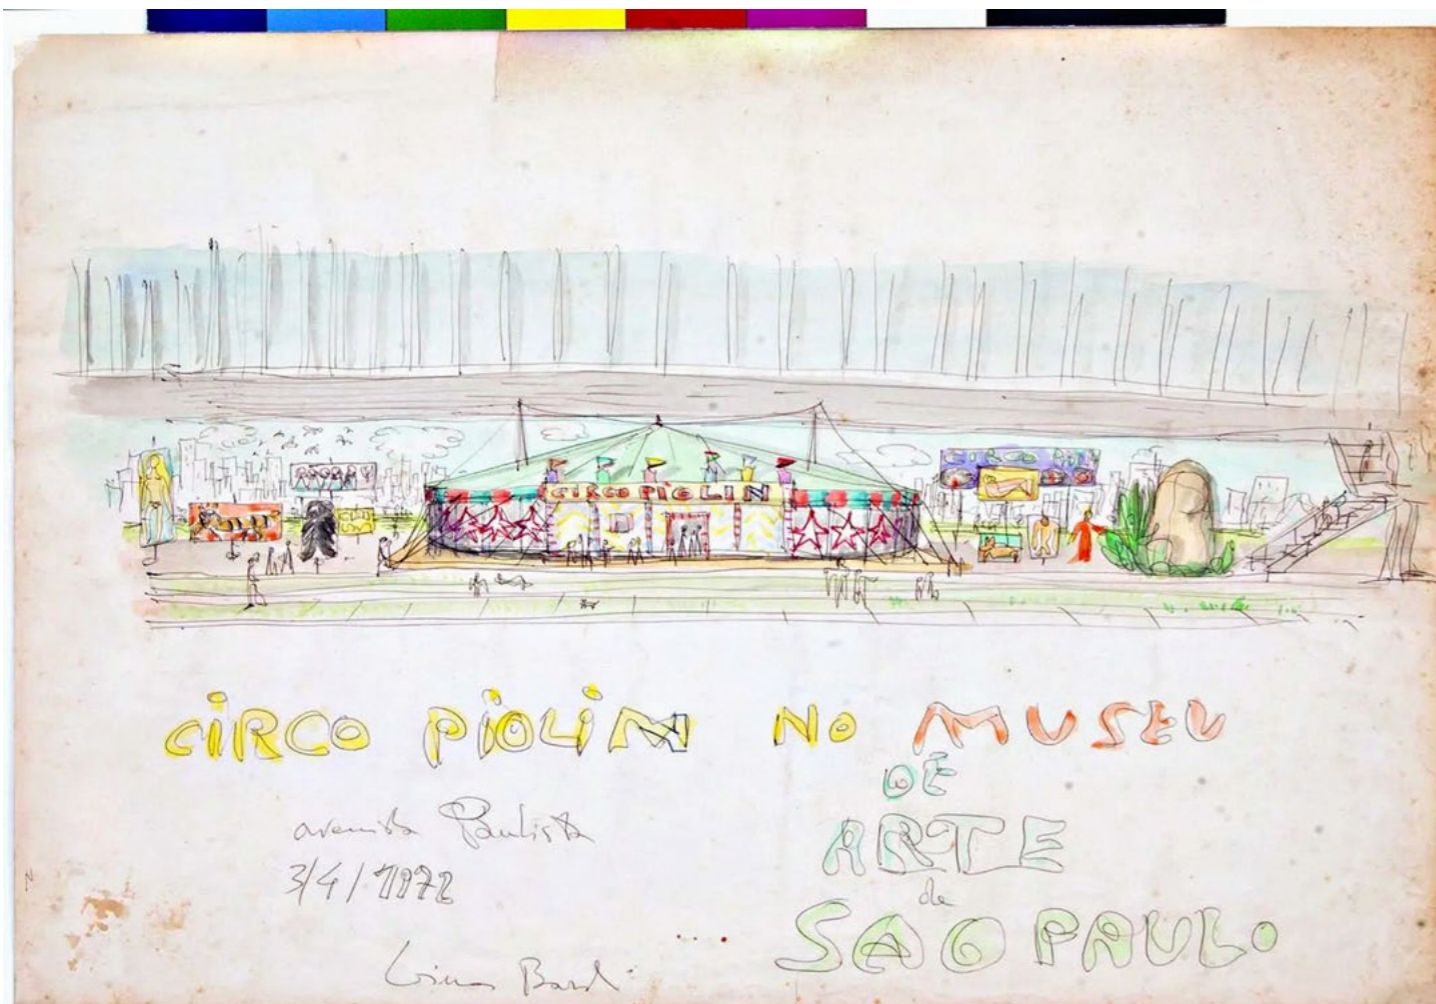 CIRCO PI
CIRCO PIOLIN
CIRCO PIOLIN NO MUSEU
DE
ARTE
de
SAO PAULO
avenida Paulista
3/4/1972
Lina Bardi